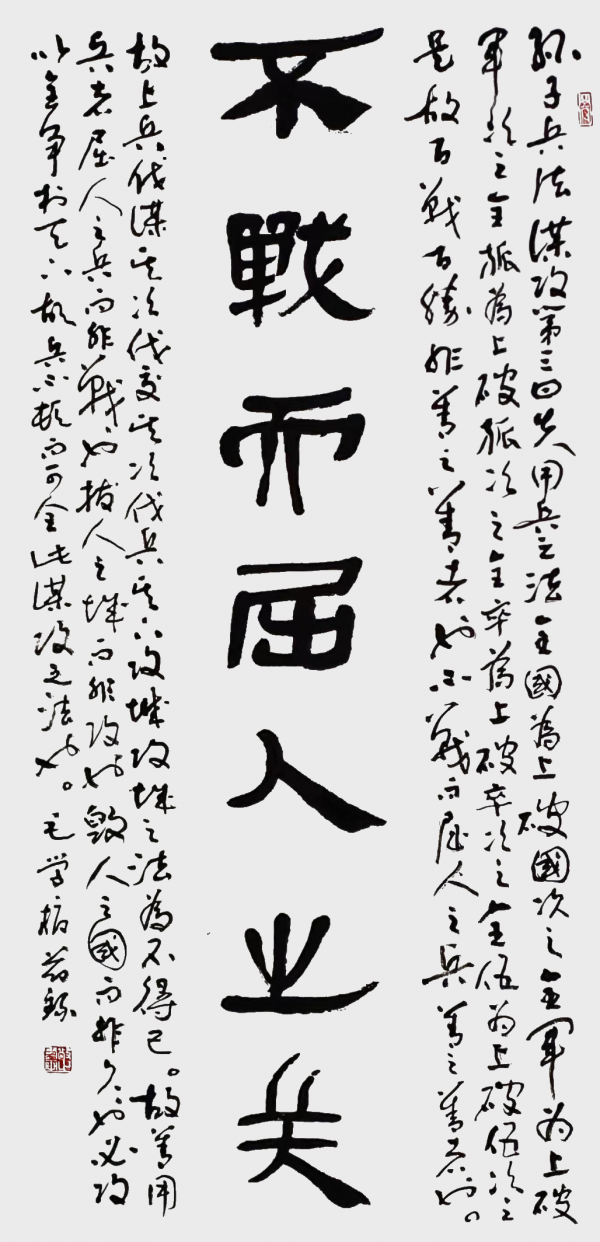 孫子兵法謀攻第三曰夫用兵之法全國為上破國次之全軍为上破
軍次之全旅為上破旅次之全卒為上破卒次之全伍为上破伍次之
是故百戰百勝非善之善者也不戰而屈人之兵善之善者也。
不戰而屈人之兵
故上兵伐謀其次伐交其次伐兵其下攻城攻城之法為不得已。故善用
兵者屈人之兵而非戰也拔人之城而非攻也毀人之國而非久也必攻
以全争於天下故兵不頓而可全此謀攻之法也。毛学